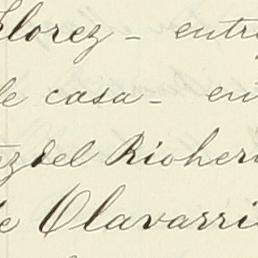 Florez - entr
le casa - en
ez del Rioher
le Olavarri